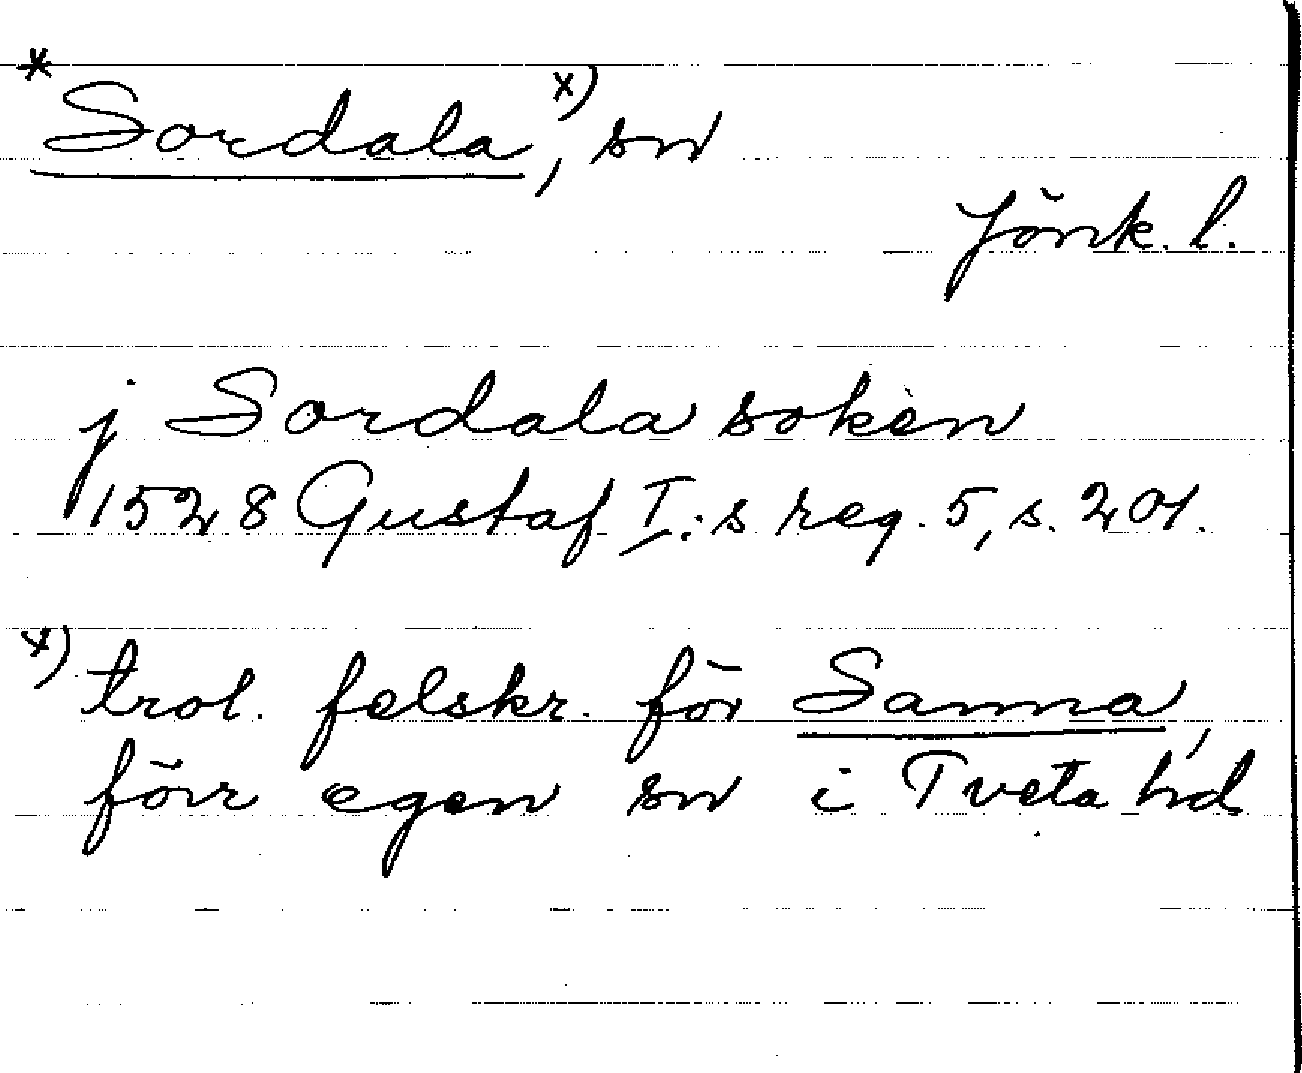 * Sordala, x) sn
Jönk. l.
j Sordala soken
1528 Gustaf I:s reg. 5, s. 201.
x) trol. felskr. för Sanna,
förr egen sn i Tveta hd